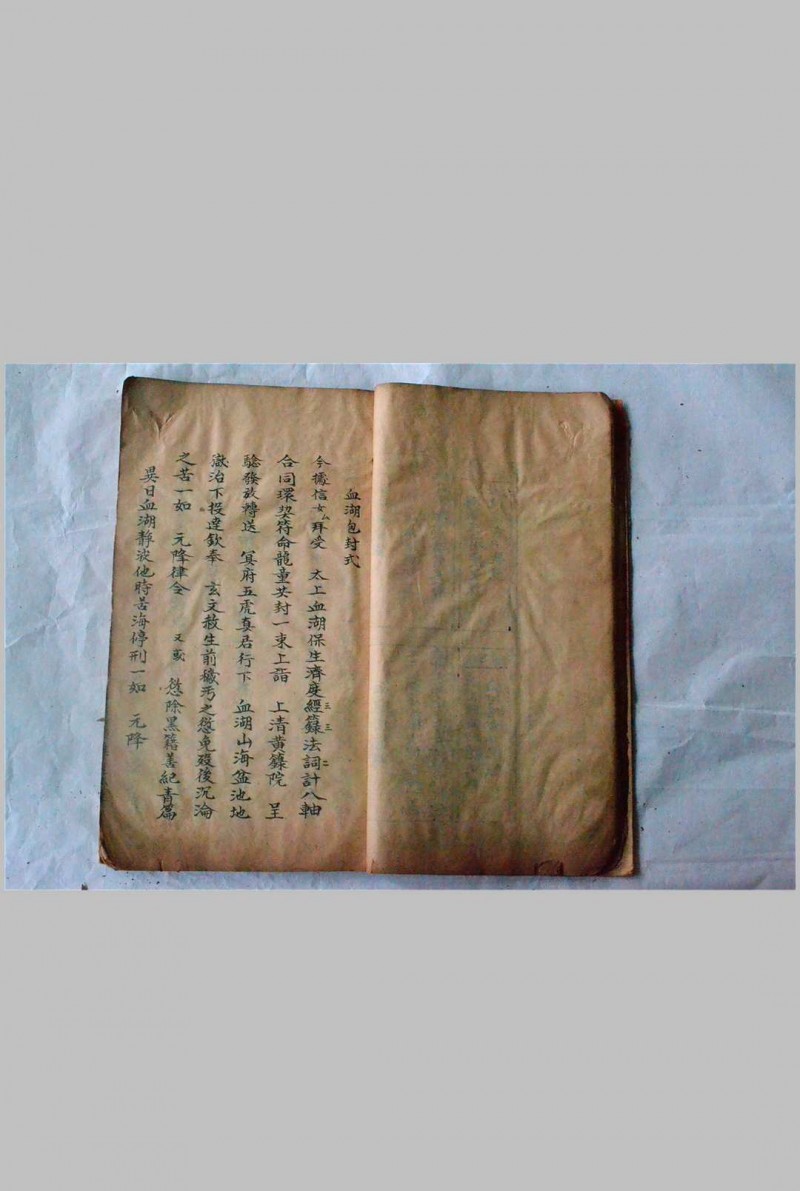 血湖包封式
今據信女厶拜受 太上血湖保生濟度經三籙三法詞二計八軸
合同環契符命龍童共封一束上詣 上清黃籙院 呈
驗發放轉送 冥府五虎真君行下 血湖山海盆池地
獄治下投達欽奉 玄文赦生前穢污之愆免歿後沉淪
之苦一如 元降律令 又或 愆除黑籍善紀青篇
異日血湖靜波他時苦海停刑一如 元降